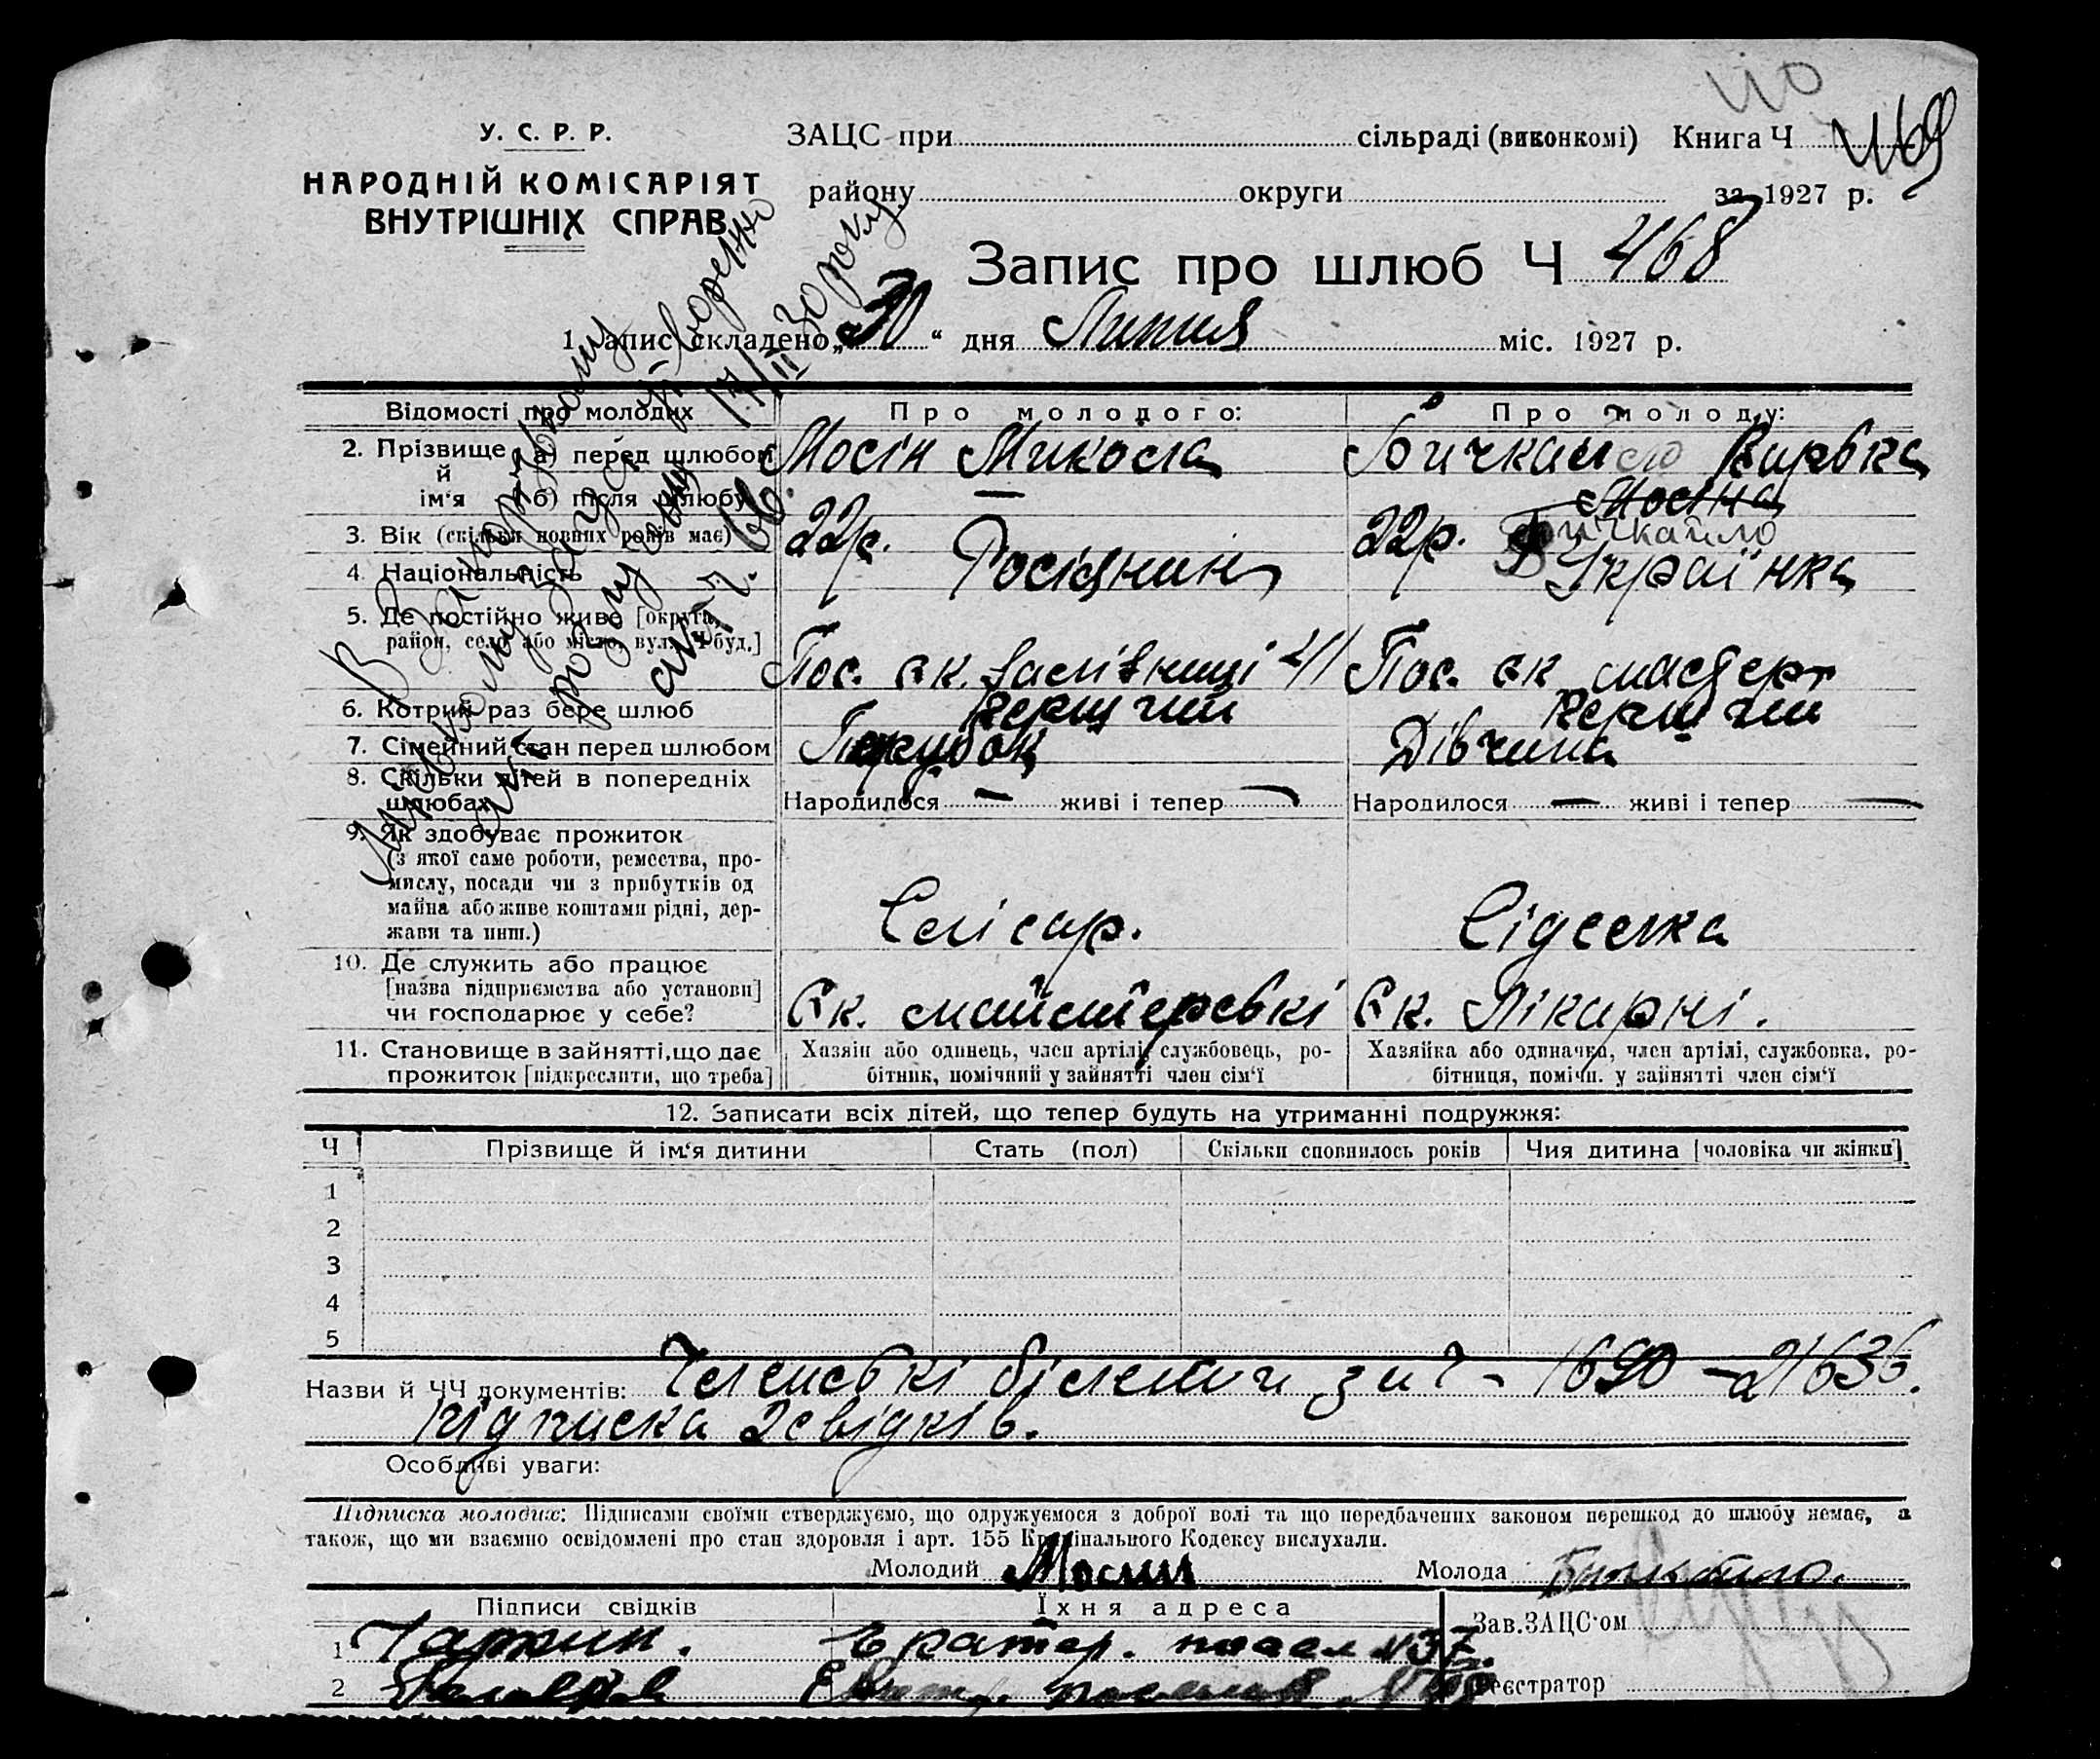 У. С. Р. Р.
НАРОДНІЙ КОМІСАРІЯТ
ВНУТРІШНІХ СПРАВ
ЗАЦС при сільраді (виконкомі) Книга Ч
району округи за 1927 р.
Запис про шлюб Ч 468
1. Запис складено „30“ дня Липня міс. 1927 р.
В Запорізькому
Міськ
акт розлучення
акт ч. 66. 17/II 30 року
Відомості про молодих Про молодого: Про молоду:
2. Прізвище й ім'я а) перед шлюбом Мосін Микола Бичкайло Вірька
б) після шлюбу — Мосіна Бичкайло
3. Вік (скільки повних років має) 22р. 22р.
4. Національність Росіянин Українка
5. Де постійно живе [округа, район, село або місто, вул., Ч буд.] Пос. Єк. Заліθниці 41 Пос. Єк майстер
6. Котрий раз бере шлюб Перщий Перщий
7. Сімейний стан перед шлюбом Парубок Дівчина
8. Скільки дітей в попередніх шлюбах Народилося — живі і тепер — Народилося — живі і тепер —
9. Як здобуває прожиток
(з якої саме роботи, ремества, промислу, посади чи з прибутків од
майна або живе коштами рідні, держави та инш.) Слісар. Сіделка
10. Де служить або працює
[назва підприємства або установи]
чи господарює у себе? Єк. майстерські Єк. Лікарні.
11. Становище в зайнятті, що дає
прожиток [підкреслити, що треба]
Хазяїн або одинець, член артілі, службовець, ро-
бітник, помічний у зайнятті член сім'ї
Хазяйка або одиначка, член артілі, службовка, ро-
бітниця, помічн. у зайнятті член сім'ї
12. Записати всіх дітей, що тепер будуть на утриманні подружжя:
Ч Прізвище й ім'я дитини Стать (пол) Скільки сповнилось років Чия дитина [чоловіка чи жінки]
1
2
3
4
5
Назви й ЧЧ документів: Членські білети за ч - 1690 - 21636.
підписка 2 свідків.
Особливі уваги:
Підписка молодих: Підписами своїми стверджуємо, що одружуємося з доброї волі та що передбачених законом перешкод до шлюбу немає, а
також, що ми взаємно освідомлені про стан здоровля і арт. 155 Кримінального Кодексу вислухали.
Молодий Мосин Молода Бичкайло.
Підписи свідків Їхня адреса Зав. ЗАЦС'ом
1 Екатер. посел N 37
2 Реєстратор